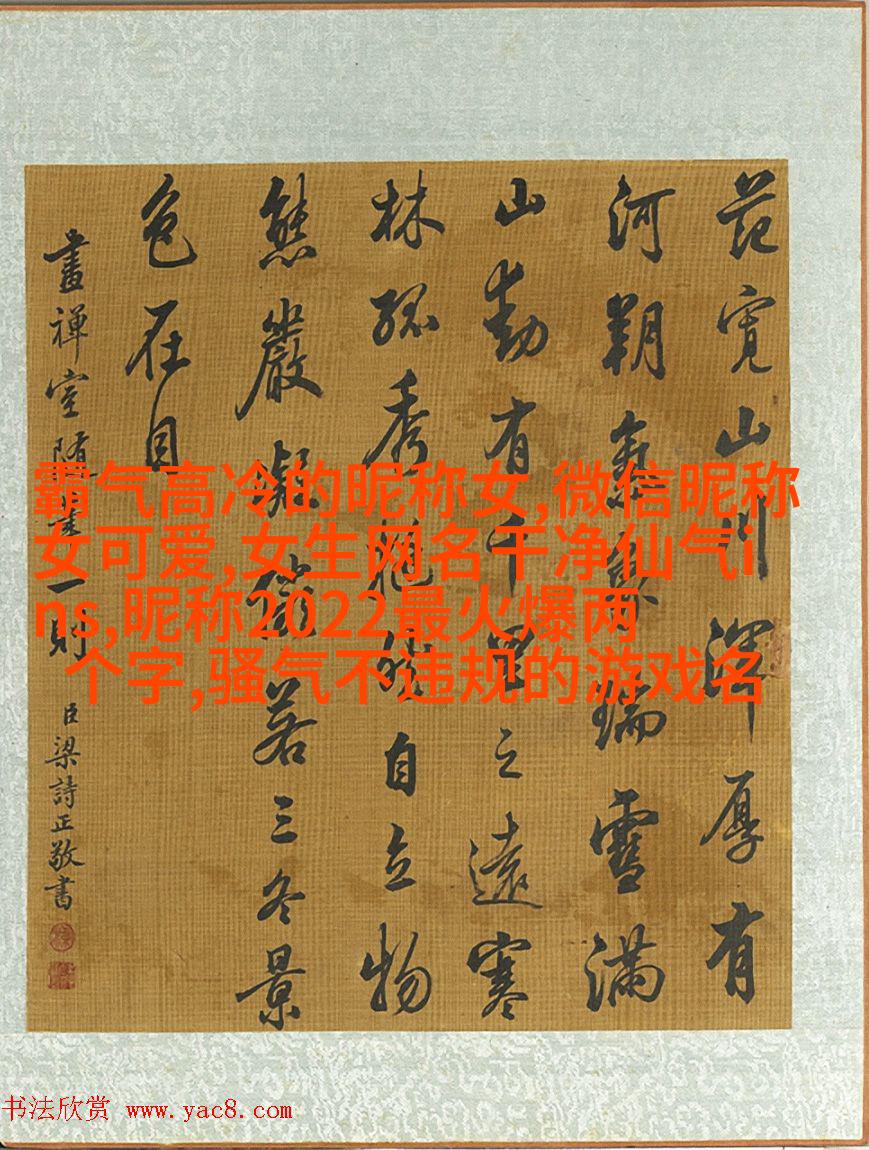 范寬山川渾厚有
河朔氣象瑞雪滿
山動有千里之遠寒
林孤秀挺然自立物
態嚴凝儼若三冬景
色在目
畫禪室隨筆一則 臣梁詩正敬書
霸气高冷的昵称女,微信昵称
女可爱,女生网名干净仙气i
ns,昵称2022最火爆两
个字,骚气不违规的游戏名
书法欣赏 www.yac8.com